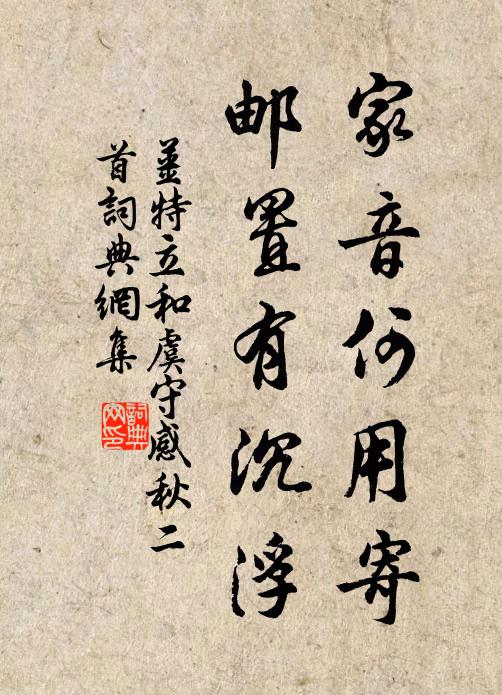 家音何用寄
邮置有沉浮
姜特立和虞守感秋二
首詞典網集
詞典網印